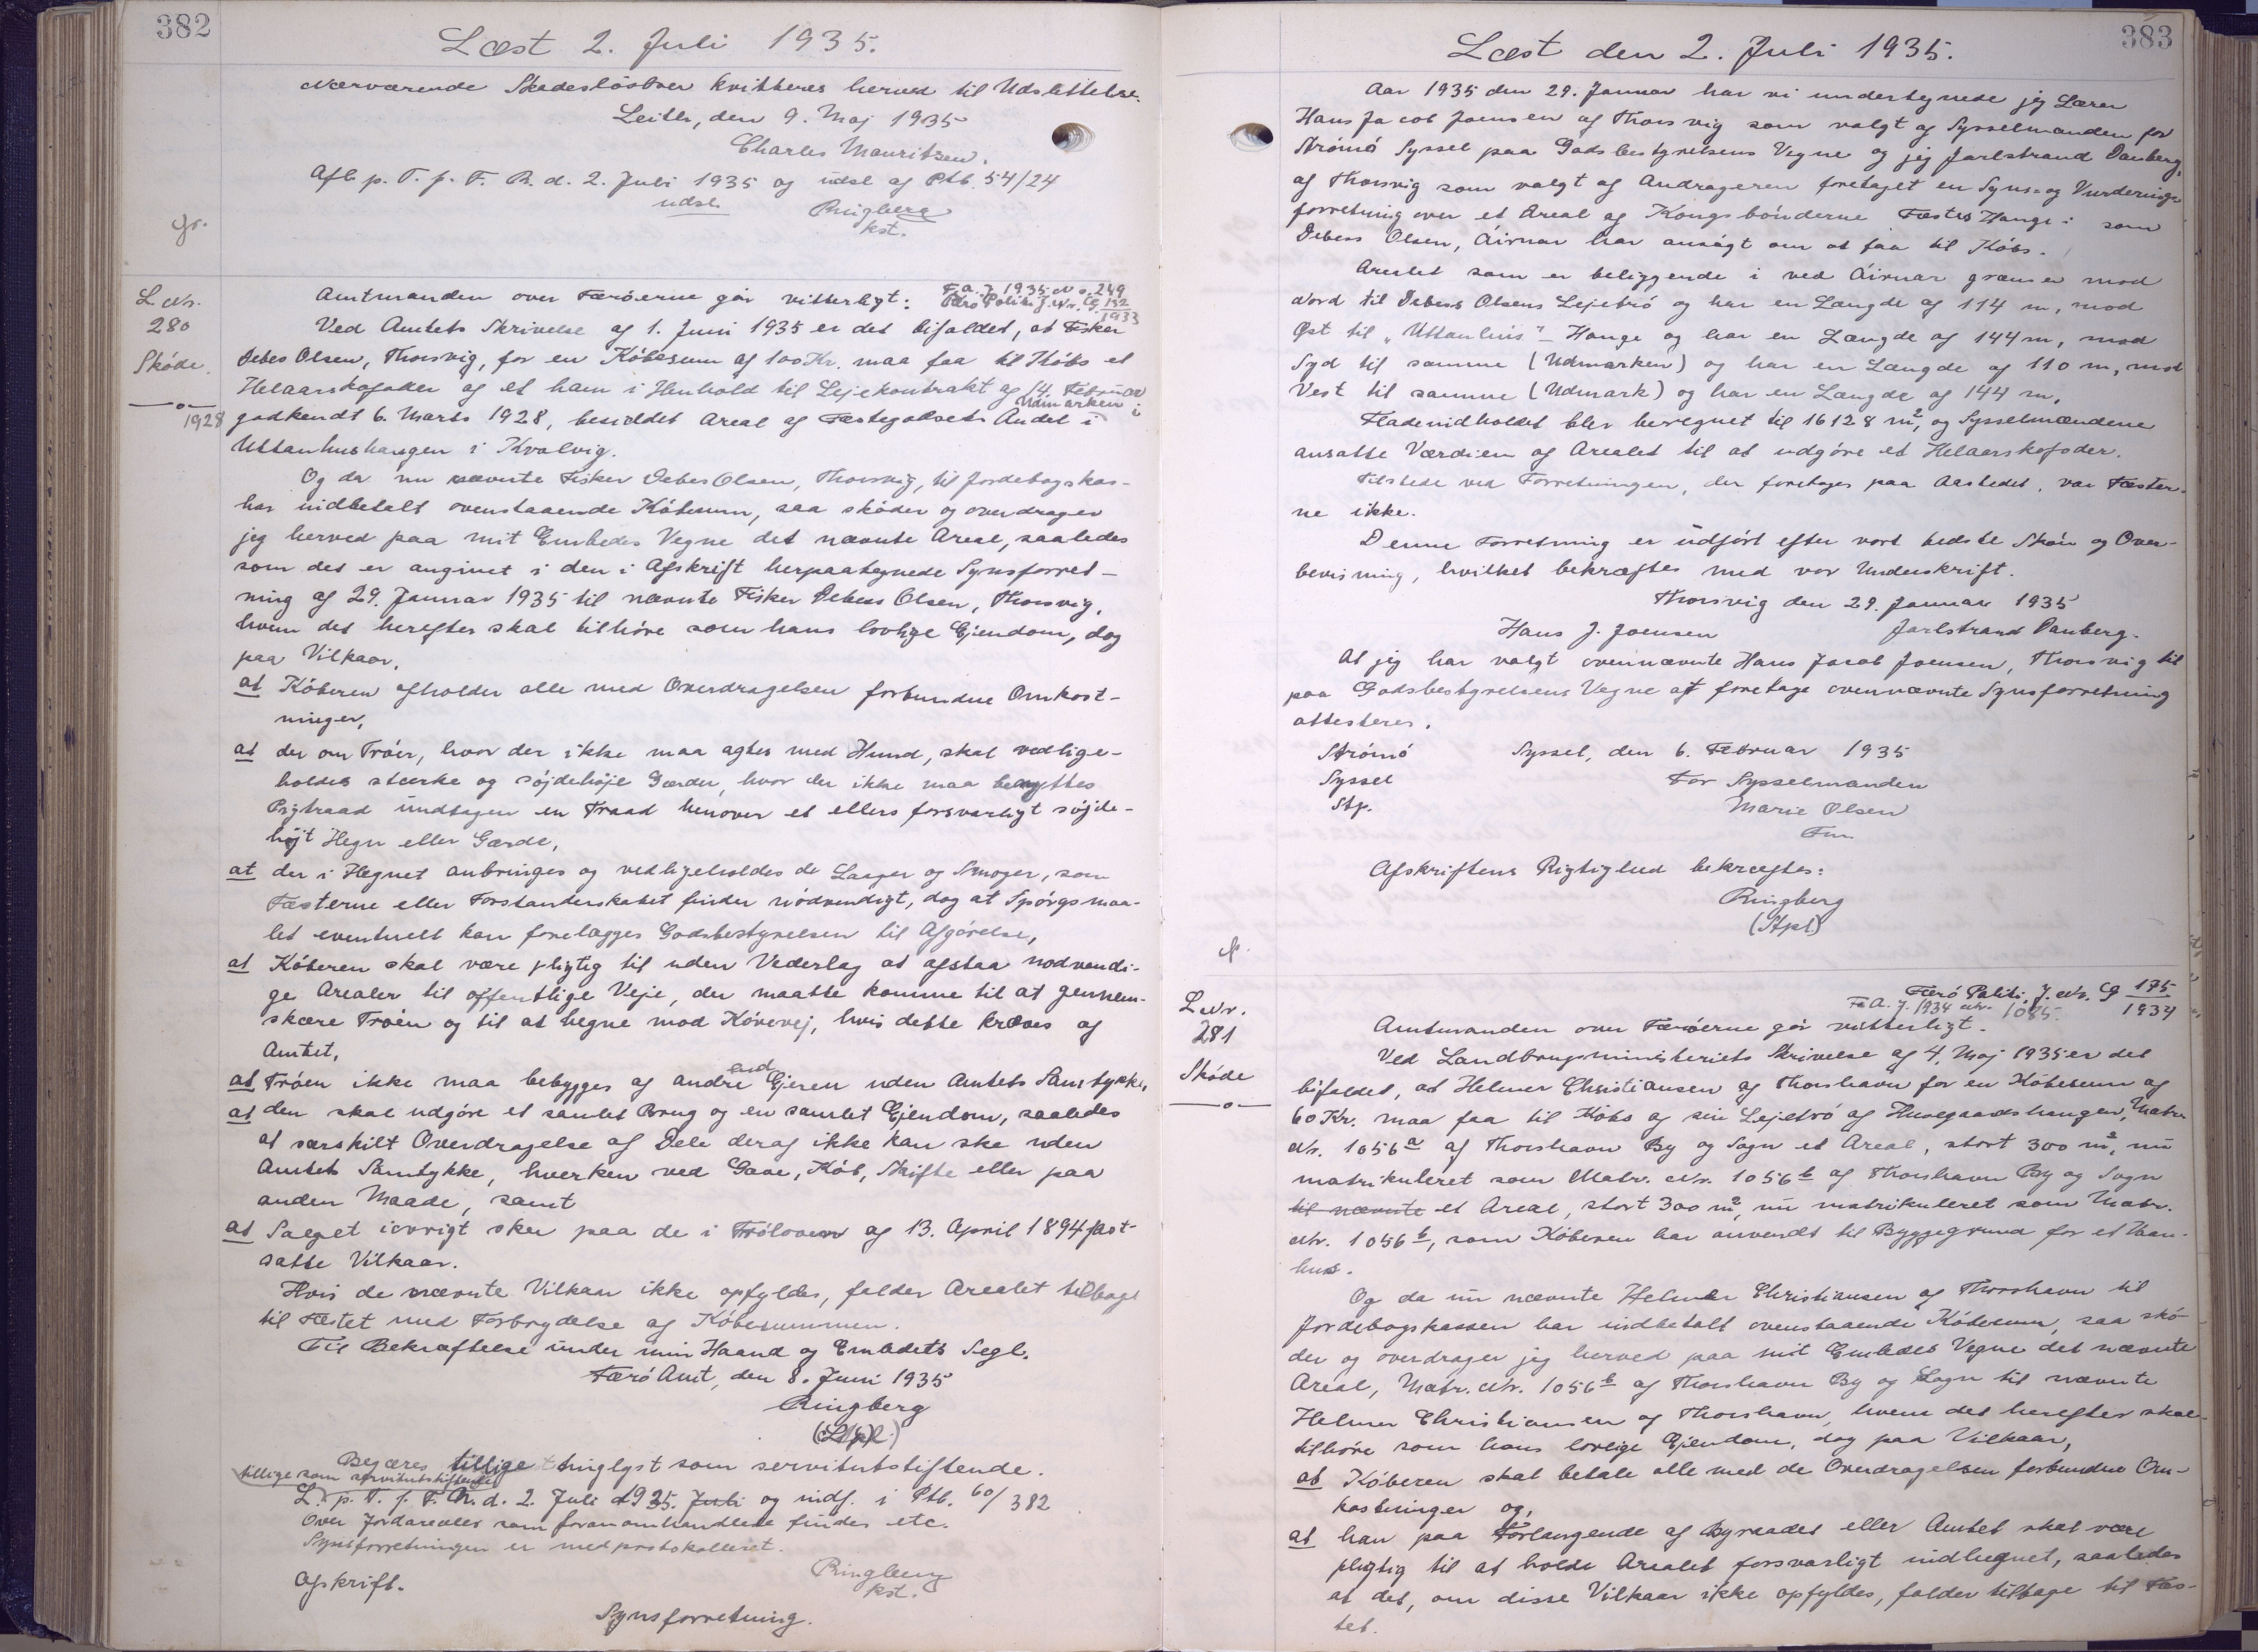 382
Læst 2. Juli 1935.
Nærværende Skadesløsbrev kvitteres herved til Udslettelse.
Leith, den 9. Maj 1935
Charles Mauritzen.
Afl. p. T. f. F. R. d. 2. Juli 1935 og udsl. af Ptb. 54/24
udsl.
Ringberg
kst.
gr.
L. Nr.
280
Skøde.
Amtmanden over Færøerne gør vitterligt:
F. A. J. 1935 No. 249
Færø Politi J. Nr. Cg 132/1933
Ved Amtets Skrivelse af 1. Juni 1935 er det bifaldet, at Fisker
Debes Olsen, Thorsvig, for en Købesum af 100 Kr. maa faa til Købs et
Helaarskofoder af et ham i Henhold til Lejekontrakt af 14. Februar
1928 godkendt 6. Marts 1928, besiddet Areal af Fæstegodsets Andel i Udmarken i
Uttanhushaugen i Kvalvig.
Og da nu nævnte Fisker Debes Olsen, Thorsvig, til Jordebogskas-
har indbetalt ovenstaaende Købesum, saa skøder og overdrager
jeg herved paa mit Embedes Vegne det nævnte Areal, saaledes
som det er angivet i den i Afskrift herpaategnede Synsforret-
ning af 29. Januar 1935 til nævnte Fisker Debess Olsen, Thorsvig,
hvem det herefter skal tilhøre som hans lovlige Ejendom, dog
paa Vilkaar,
at Køberen afholder alle med Overdragelsen forbundne Omkost-
ninger,
at der om Trøen, hvor der ikke maa agtes med Hund, skal vedlige-
holdes stærke og søjdehøje Gærder, hvor der ikke maa benyttes
Pigtraad undtagen en Traad henover et ellers forsvarligt søjde-
højt Hegn eller Gærde,
at der i Hegnet anbringes og vedligeholdes de Laager og Smoger, som
Fæsterne eller Forstanderskabet finder nødvendigt, dog at Spørgsmaa-
let eventuelt kan forelægges Godsbestyrelsen til Afgørelse,
at Køberen skal være pligtig til uden Vederlag at afstaa nødvendi-
ge Arealer til offentlige Veje, der maatte komme til at gennem-
skære Trøen og til at hegne mod Kørevej, hvis dette kræves af
Amtet,
at Trøen ikke maa bebygges af andre end Ejeren uden Amtets Samtykke,
at den skal udgøre et samlet Brug og en samlet Ejendom, saaledes
at særskilt Overdragelse af Dele deraf ikke kan ske uden
Amtets Samtykke, hverken ved Gave, Køb, Skifte eller paa
anden Maade, samt
at Salget iøvrigt sker paa de i Trøloven af 13. April 1894 fast-
satte Vilkaar.
Hvis de nævnte Vilkaar ikke opfyldes, falder Arealet tilbage
til Fæstet med Forbrydelse af Købesummen.
Til Bekræftelse under min Haand og Embedets Segl.
Færø Amt, den 8. Juni 1935
Ringberg
Begæres tillige tinglyst som servitutstiftende.
tillige som servitutstiftende
L. p. T. f. F. R. d. 2. Juli 1935. Juli og indf. i Ptb. 60/382
Over Jordarealer som foranomhandlede findes etc.
Synsforretningen er medprotokolleret.
Ringberg
kst.
Afskrift.
Synsforretning.
383
Læst den 2. Juli 1935.
Aar 1935 den 29. Januar har vi undertegnede jeg Lærer
Hans Jacob Joensen af Thorsvig som valgt af Sysselmanden for
Strømø Syssel paa Godsbestyrelsens Vegne og jeg Jarlstrand Danberg,
af Thorsvig som valgt af Andrageren foretaget en Syns- og Vurderings-
forretning over et Areal af Kongsbønderne Fæstes Hauge i som
Debess Olsen, Áirnar har ansøgt om at faa til Købs.
Arealet som er beliggende i ved Áirnar grænser mod
Nord til Debess Olsens Lejetrø og har en Længde af 114 m, mod
Øst til "Uttanhús"-Hauge og har en Længde af 144 m, mod
Syd til samme (Udmarken) og har en Længde af 110 m, mod
Vest til samme (Udmark) og har en Længde af 144 m.
Fladeindholdet blev beregnet til 16128 m², og Sysselmændene
ansatte Værdien af Arealet til at udgøre et Helaarskofoder.
Tilstede ved Forretningen, der foretoges paa Aastedet, var Fæster-
ne ikke.
Denne Forretning er udført efter vort bedste Skøn og Over-
bevisning, hvilket bekræftes med vor Underskrift.
Thorsvig den 29. Januar 1935
Hans J. Joensen Jarlstrand Danberg.
At jeg har valgt ovennævnte Hans Jacob Joensen, Thorsvig til
paa Godsbestyrelsens Vegne at foretage ovennævnte Synsforretning
attesteres.
Strømø Syssel, den 6. Februar 1935
Syssel For Sysselmanden
Stp. Marie Olsen
Fm
Afskriftens Rigtighed bekræftes:
Ringberg
(Stpl)
L. Nr.
281
Skøde
Færø Politi. J. Nr. Cg 175/1934
F. A. J. 1934 Nr. 1085.
Amtmanden over Færøerne gør vitterligt.
Ved Landbrugsministeriets Skrivelse af 4. Maj 1935 er det
bifaldet, at Helmer Christiansen af Thorshavn for en Købesum af
60 Kr. maa faa til Købs af sin Lejetrø af Husegaardshaugen, Matr.
Nr. 1056a af Thorshavn By og Sogn et Areal, stort 300 m², nu
matrikuleret som Matr. Nr. 1056b af Thorshavn By og Sogn
til nævnte et Areal, stort 300 m², nu matrikuleret som Matr.
Nr. 1056b, som Køberen har anvendt til Byggegrund for et Vaan-
hus.
Og da nu nævnte Helmer Christiansen af Thorshavn til
Jordebogskassen har indbetalt ovenstaaende Købesum, saa skø-
der og overdrager jeg herved paa mit Embedes Vegne det nævnte
Areal, Matr. Nr. 1056b af Thorshavn By og Sogn til nævnte
Helmer Christiansen af Thorshavn, hvem det herefter skal
tilhøre som hans lovlige Ejendom, dog paa Vilkaar,
at Køberen skal betale alle med de Overdragelsen forbundne Om-
kostninger og,
at han paa Forlangende af Byraadet eller Amtet skal være
pligtig til at holde Arealet forsvarligt indhegnet, saaledes
at det, om disse Vilkaar ikke opfyldes, falder tilbage til Fæs-
tet.